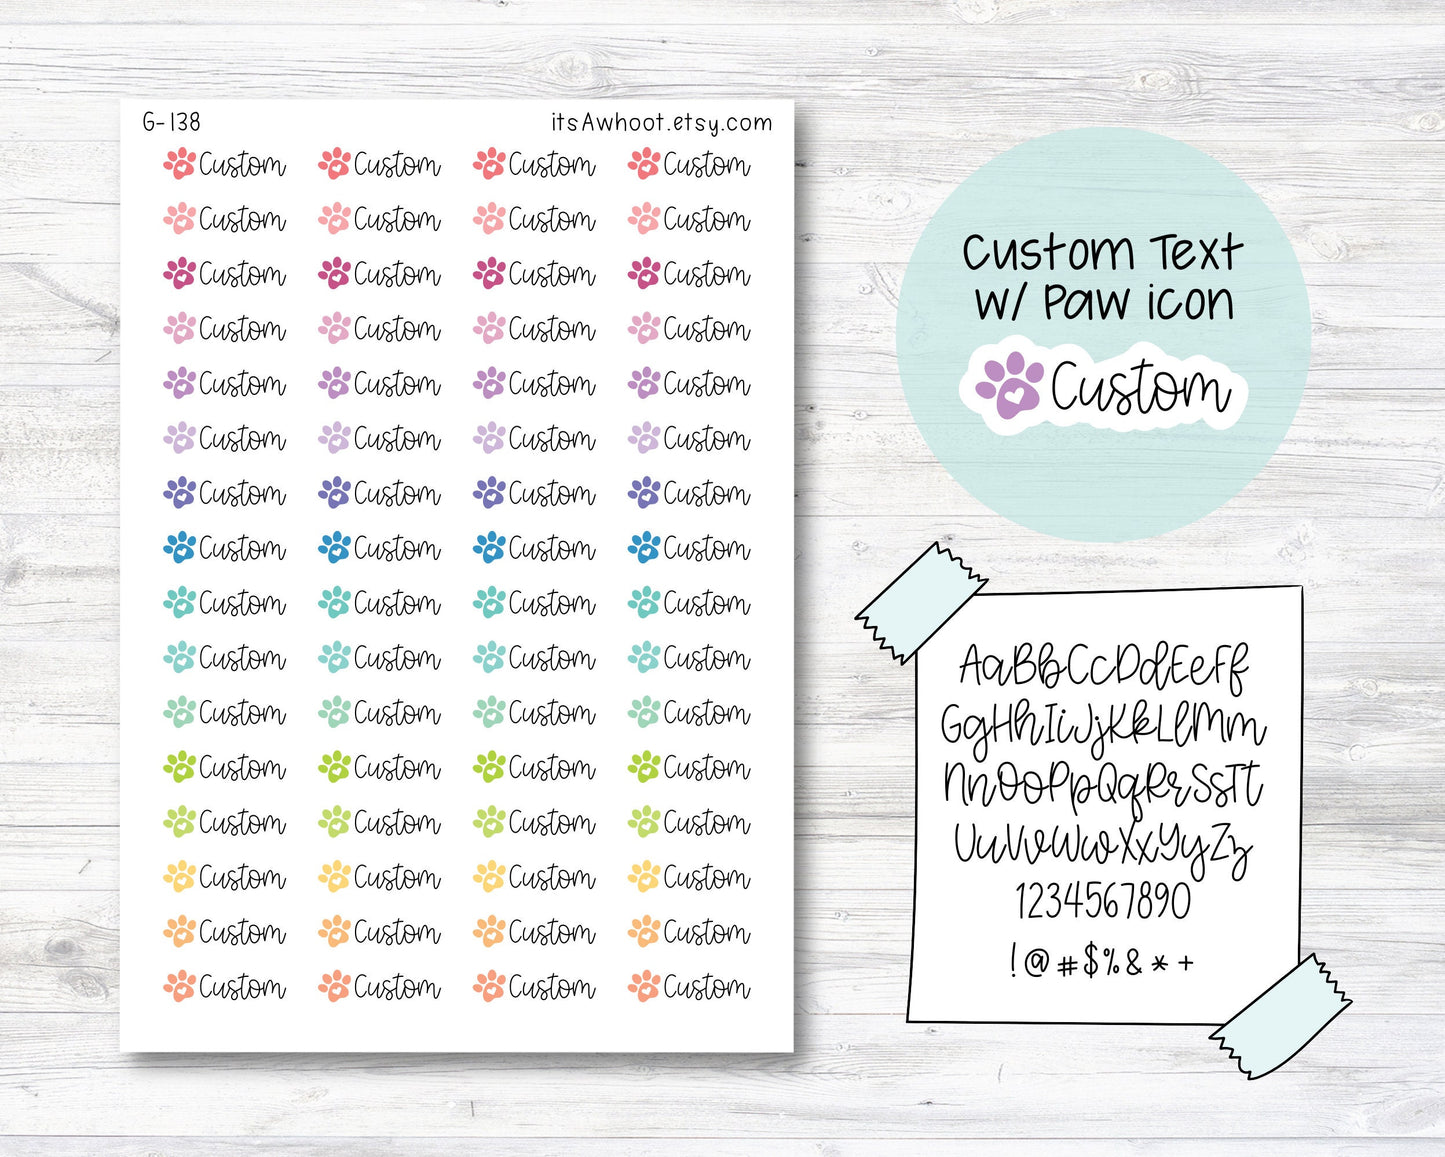 G-138 itsAwhoot.etsy.com
Custom Custom Custom Custom
Custom Custom Custom Custom
Custom Custom Custom Custom
Custom Custom Custom Custom
Custom Custom Custom Custom
Custom Custom Custom Custom
Custom Custom Custom Custom
Custom Custom Custom Custom
Custom Custom Custom Custom
Custom Custom Custom Custom
Custom Custom Custom Custom
Custom Custom Custom Custom
Custom Custom Custom Custom
Custom Custom Custom Custom
Custom Custom Custom Custom
Custom Custom Custom Custom
Custom Text
w/ Paw icon
Custom
AaBbCcDdEeFf
GgHhIiJjKkLlMm
NnOoPpQqRrSsTt
UuVvWwXxYyZz
1234567890
!@#$%&*+